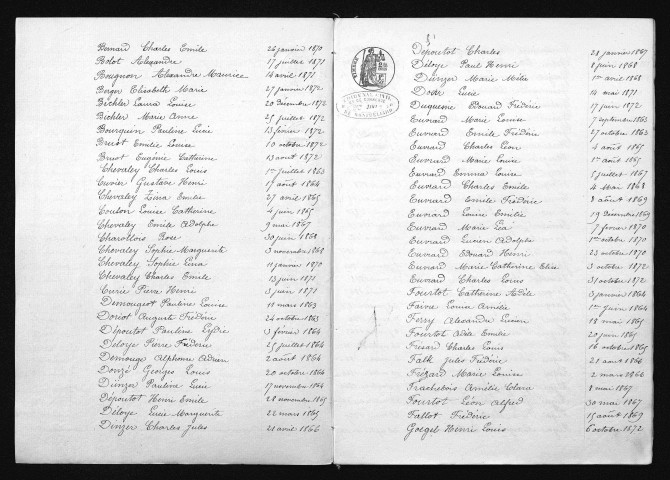 Bernard Charles Emile 26 janvier 1870
Bolot Alexandre 17 juillet 1871
Bougnon Alexandre Maurice 16 avril 1871
Beger Elisabeth Marie 27 janvier 1872
Bichler Laura Louise 20 décembre 1872
Bichler Marie Anne 25 juillet 1872
Bourquin Pauline Lucie 13 février 1872
Brisot Emélie Louise 10 octobre 1872
Brisot Eugénie Catherine 13 aout 1872
Chevaley Charles Louis 1er juillet 1863
Cuvier Gustave Henri 17 aout 1864
Chevaley Lina Emélie 27 avril 1865
Couton Louise Catherine 4 juin 1865
Chevaley Emile Adolphe 9 mai 1867
Charollois Rose 30 juin 1868
Chevaley Sophie Marguerite 3 novembre 1868
Chevaley Sophie Lina 11 janvier 1870
Chevaley Charles Emile 13 juin 1871
Curie Pierre Henri 3 juin 1871
Demougeot Pauline Louise 10 mars 1863
Doriot Auguste Frédéric 24 octobre 1863
Dépoutot Pauline Elydie 3 février 1864
Deloye Pierre Frédéric 25 juillet 1864
Demouge Alphonse Adrien 2 aout 1864
Donzé Georges Louis 20 octobre 1864
Dünzer Pauline Lucie 17 novembre 1864
Dépoutot Henri Emile 28 novembre 1865
Déloye Lucie Marguerite 22 mars 1865
Dinzer Charles Jules 21 avril 1866
Dépoutot Charles 28 janvier 1867
Déloye Paul Henri 8 juin 1868
Dünzer Marie Mélie 1er avril 1868
Dodr Lucie 14 mai 1871
Duquesne Edouard Frédéric 17 juin 1872
Euvrard Marie Louise 7 septembre 1863
Euvrard Emile Frédéric 27 octobre 1863
Euvrard Charles Léon 4 aout 1867
Euvrard Marie Louise 1er aout 1865
Euvrard Emma Louise 5 juillet 1867
Euvrard Charles Emile 4 Mai 1868
Euvrard Emile Frédéric 3 aout 1869
Euvrard Louise Emélie 19 décembre 1869
Euvrard Marie Léa 7 février 1870
Euvrard Lucien Adolphe 1er octobre 1870
Euvrard Edouard Henri 23 octobre 1870
Euvrard Marie Catherine Elise 3 octobre 1872
Euvrard Charles Louis 31 octobre 1872
Fourtot Catherine Adèle 3 janvier 1864
Faivre Louise Amélie 1er juin 1864
Ferry Alexandre Lucien 18 mai 1865
Fourtot Adèle Emélie 20 juin 1865
Frésard Charles Louis 16 octobre 1865
Falk Jules Frédéric 21 aout 1866
Frézard Marie Louise 2 mars 1866
Frachebois Amélie Clara 8 mai 1867
Fourtot Léon Alfred 30 mai 1867
Fallot Frédéric 15 aout 1869
Goegel Henri Louis 6 octobre 1872